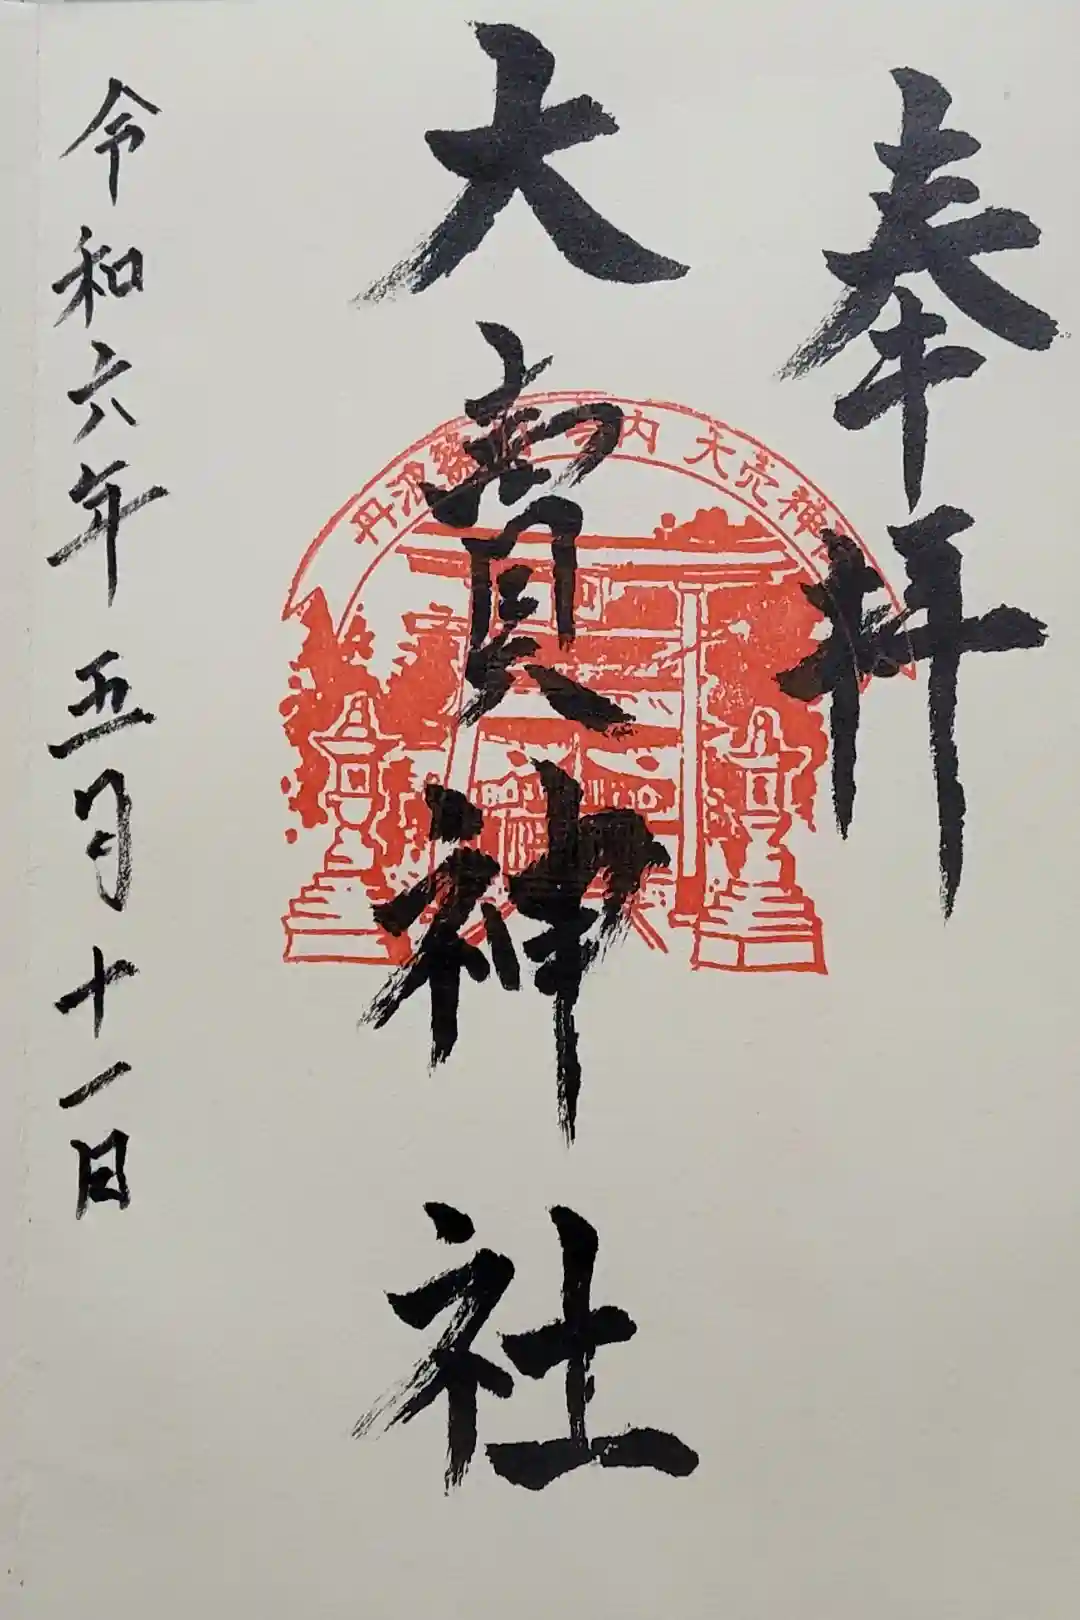 奉拝
大賣神社
令和六年五月十一日
丹波篠 内 大売神